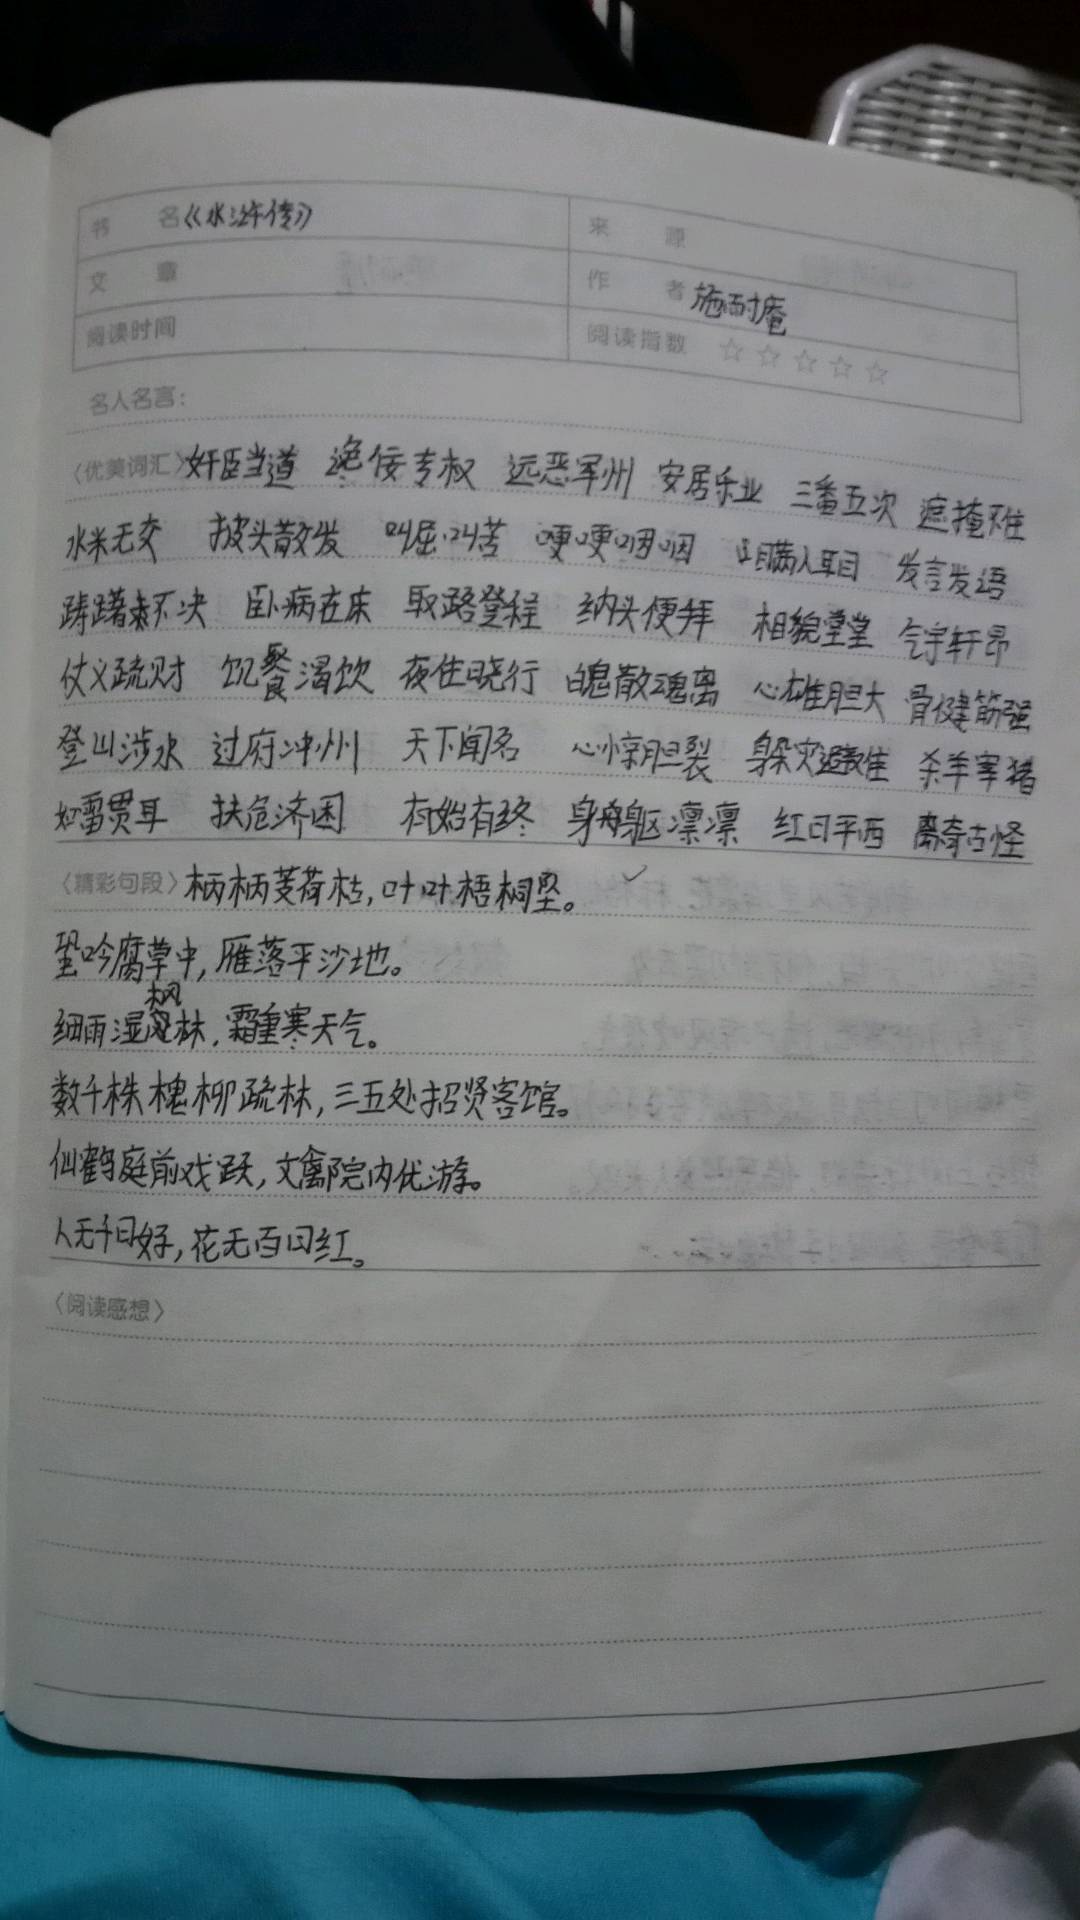 书 名 《水浒传》 来 源
文 章 作 者 施耐庵
阅读时间 阅读指数 ☆☆☆☆☆
名人名言：
〈优美词汇〉奸臣当道 谗佞专权 远恶军州 安居乐业 三番五次 遮掩不住
水米无交 披头散发 叫屈叫苦 哽哽咽咽 瞒人耳目 发言发语
踌躇不决 卧病在床 取路登程 纳头便拜 相貌堂堂 气宇轩昂
仗义疏财 饥餐渴饮 夜住晓行 魄散魂离 心雄胆大 骨健筋强
登山涉水 过府冲州 天下闻名 心惊胆裂 躲灾避难 杀羊宰猪
如雷贯耳 扶危济困 有始有终 身躯凛凛 红日平西 离奇古怪
〈精彩句段〉柄柄芰荷枯，叶叶梧桐坠。
蛩吟腐草中，雁落平沙地。
细雨湿枫林，霜重寒天气。
数千株槐柳疏林，三五处招贤客馆。
仙鹤庭前戏跃，文禽院内优游。
人无千日好，花无百日红。
〈阅读感想〉